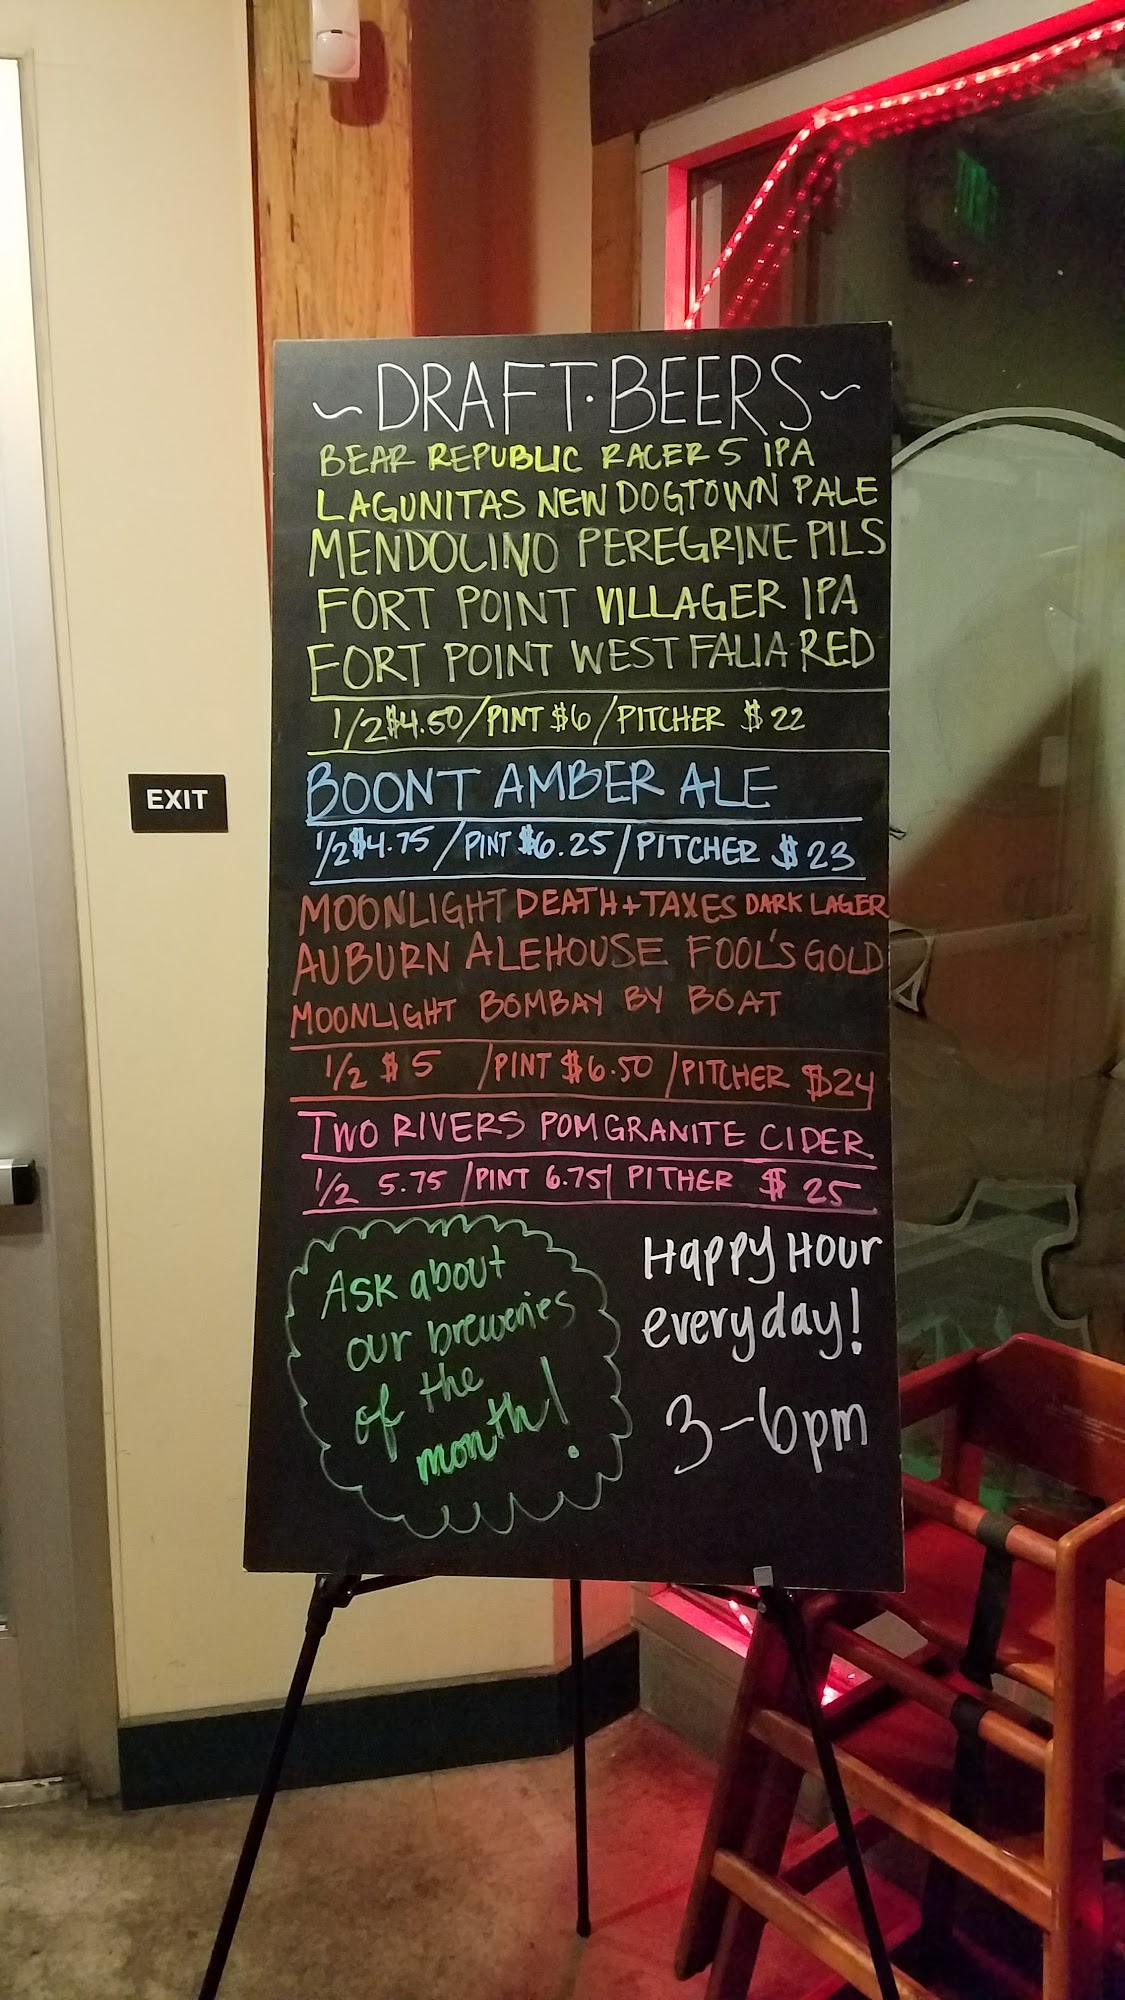 ~DRAFT·BEERS~
BEAR REPUBLIC RACER 5 IPA
LAGUNITAS NEW DOGTOWN PALE
MENDOCINO PEREGRINE PILS
FORT POINT VILLAGER IPA
FORT POINT WESTFALIA RED
1/2 $4.50/PINT $6/PITCHER $22
EXIT
BOONT AMBER ALE
1/2 $4.75/PINT $6.25/PITCHER $23
MOONLIGHT DEATH+TAXES DARK LAGER
AUBURN ALEHOUSE FOOL'S GOLD
MOONLIGHT BOMBAY BY BOAT
1/2 $5 /PINT $6.50 /PITCHER $24
TWO RIVERS POMGRANITE CIDER
1/2 5.75 /PINT 6.75/ PITHER $25
Ask about
our breweries
of the
month!
Happy Hour
everyday!
3-6pm